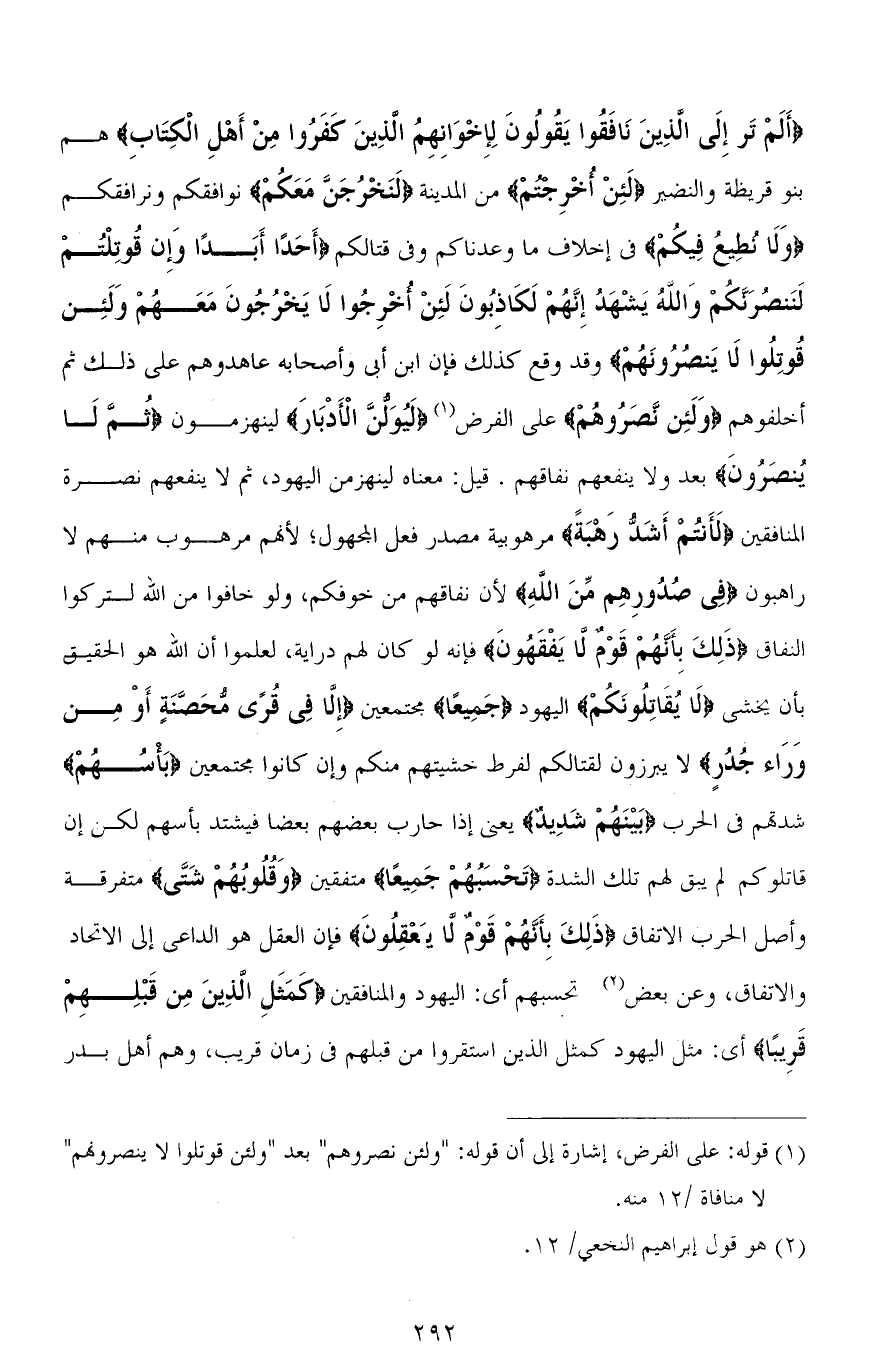 ﴿أَلَمْ تَر إِلَى الَّذِينَ نَافَقُوا يَقُولُونَ لِإِخْوَانِهِمُ الَّذِينَ كَفَرُوا مِنْ أَهْلِ الْكِتَابِ﴾ هـم
بنو قريظة والنضير ﴿لَئِنْ أُخْرِجْتُمْ﴾ من المدينة ﴿لَنَخْرُجَنَّ مَعَكُمْ﴾ نوافقكم ونرافقكـم
﴿وَلَا نُطِيعُ فِيكُمْ﴾ فى إخلاف ما وعدناكم وفى قتالكم ﴿أَحَدًا أَبَـدًا وَإِن قُوتِلْتُـمْ
لَنَنصُرَنَّكُمْ وَاللَّهُ يَشْهَدُ إِنَّهُمْ لَكَاذِبُونَ لَئِنْ أُخْرِجُوا لَا يَخْرُجُونَ مَعَـهُمْ وَلَئِـن
قُوتِلُوا لَا يَنصُرُونَهُمْ﴾ وقد وقع كذلك فإن ابن أبى وأصحابه عاهدوهم على ذلـك ثم
أخلفوهم ﴿وَلَئِن نَّصَرُوهُمْ﴾ على الفرض(١) ﴿لَيُوَلُّنَّ الْأَدْبَارَ﴾ لينهزمـون ﴿ثُـمَّ لَـا
يُنصَرُونَ﴾ بعد ولا ينفعهم نفاقهم . قيل: معناه لينهزمن اليهود، ثم لا ينفعهم نصـرة
المنافقين ﴿لَأَنتُمْ أَشَدُّ رَهْبَةً﴾ مرهوبية مصدر فعل المجهول؛ لأنهم مرهـوب منـهم لا
راهبون ﴿فِى صُدُورِهِم مِّنَ اللَّهِ﴾ لأن نفاقهم من خوفكم، ولو خافوا من الله لـتركوا
النفاق ﴿ذَلِكَ بِأَنَّهُمْ قَوْمٌ لَّا يَفْقَهُونَ﴾ فإنه لو كان لهم دراية، لعلموا أن الله هو الحقيـق
بأن يخشى ﴿لَا يُقَاتِلُونَكُمْ﴾ اليهود ﴿جَمِيعًا﴾ مجتمعين ﴿إِلَّا فِى قُرًى مُّحَصَّنَةٍ أَوْ مِـن
وَرَاء جُدُرٍ﴾ لا يبرزون لقتالكم لفرط خشيتهم منكم وإن كانوا مجتمعين ﴿بَأْسُـهُمْ﴾
شدتهم فى الحرب ﴿بَيْنَهُمْ شَدِيدٌ﴾ يعنى إذا حارب بعضهم بعضا فيشتد بأسهم لكـن إن
قاتلوكم لم يبق لهم تلك الشدة ﴿تَحْسَبُهُمْ جَمِيعًا﴾ متفقين ﴿وَقُلُوبُهُمْ شَتَّى﴾ متفرقـة
وأصل الحرب الاتفاق ﴿ذَلِكَ بِأَنَّهُمْ قَوْمٌ لَّا يَعْقِلُونَ﴾ فإن العقل هو الداعى إلى الاتحاد
والاتفاق، وعن بعض(٢) تحسبهم أى: اليهود والمنافقين ﴿كَمَثَلِ الَّذِينَ مِن قَبْلِـهِمْ
قَرِيبًا﴾ أى: مثل اليهود كمثل الذين استقروا من قبلهم فى زمان قريب، وهم أهل بـدر
(١) قوله: على الفرض، إشارة إلى أن قوله: "ولئن نصروهم" بعد "ولئن قوتلوا لا ينصرونهم"
لا منافاة /١٢ منه.
(٢) هو قول إبراهيم النخعي/ ١٢.
٢٩٢